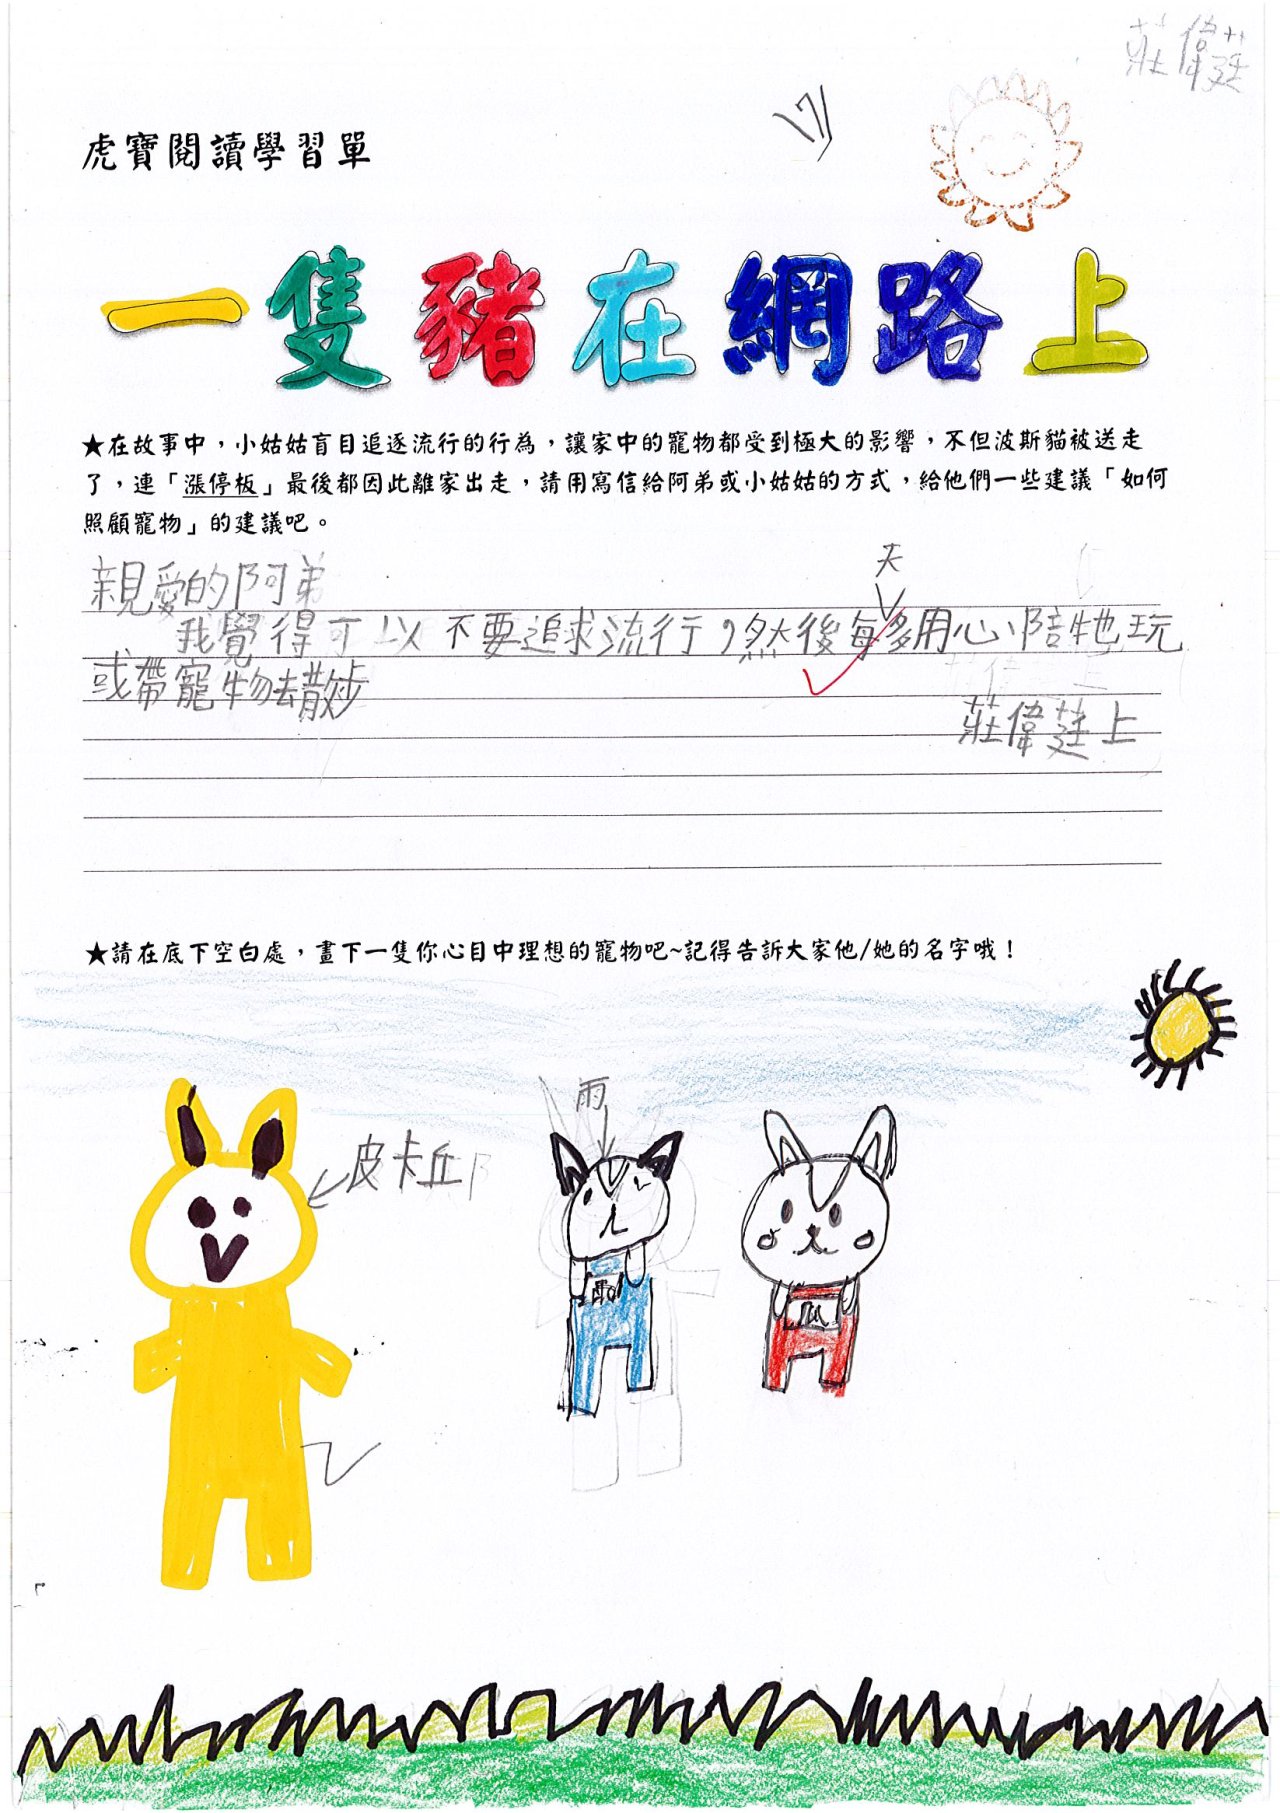 莊偉莛
虎寶閱讀學習單
一隻豬在網路上
★在故事中，小姑姑盲目追逐流行的行為，讓家中的寵物都受到極大的影響，不但波斯貓被送走
了，連「漲停板」最後都因此離家出走，請用寫信給阿弟或小姑姑的方式，給他們一些建議「如何
照顧寵物」的建議吧。
親愛的阿弟
天
我覺得可以不要追求流行，然後每多用心陪牠玩
或帶寵物去散步
莊偉莛上
★請在底下空白處，畫下一隻你心目中理想的寵物吧~記得告訴大家他/她的名字哦！
雨
皮卡丘